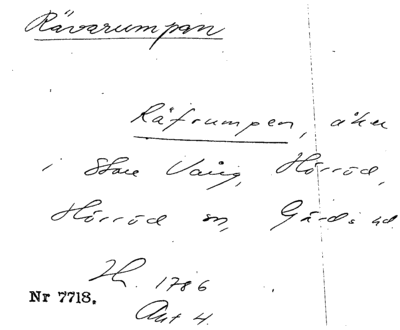 Rävarumpan
Räfrumpen, åker
i Store Vång, Hörröd,
Hörröd sn, Gärds hd
1786
Nr 7718.
Akt 4.